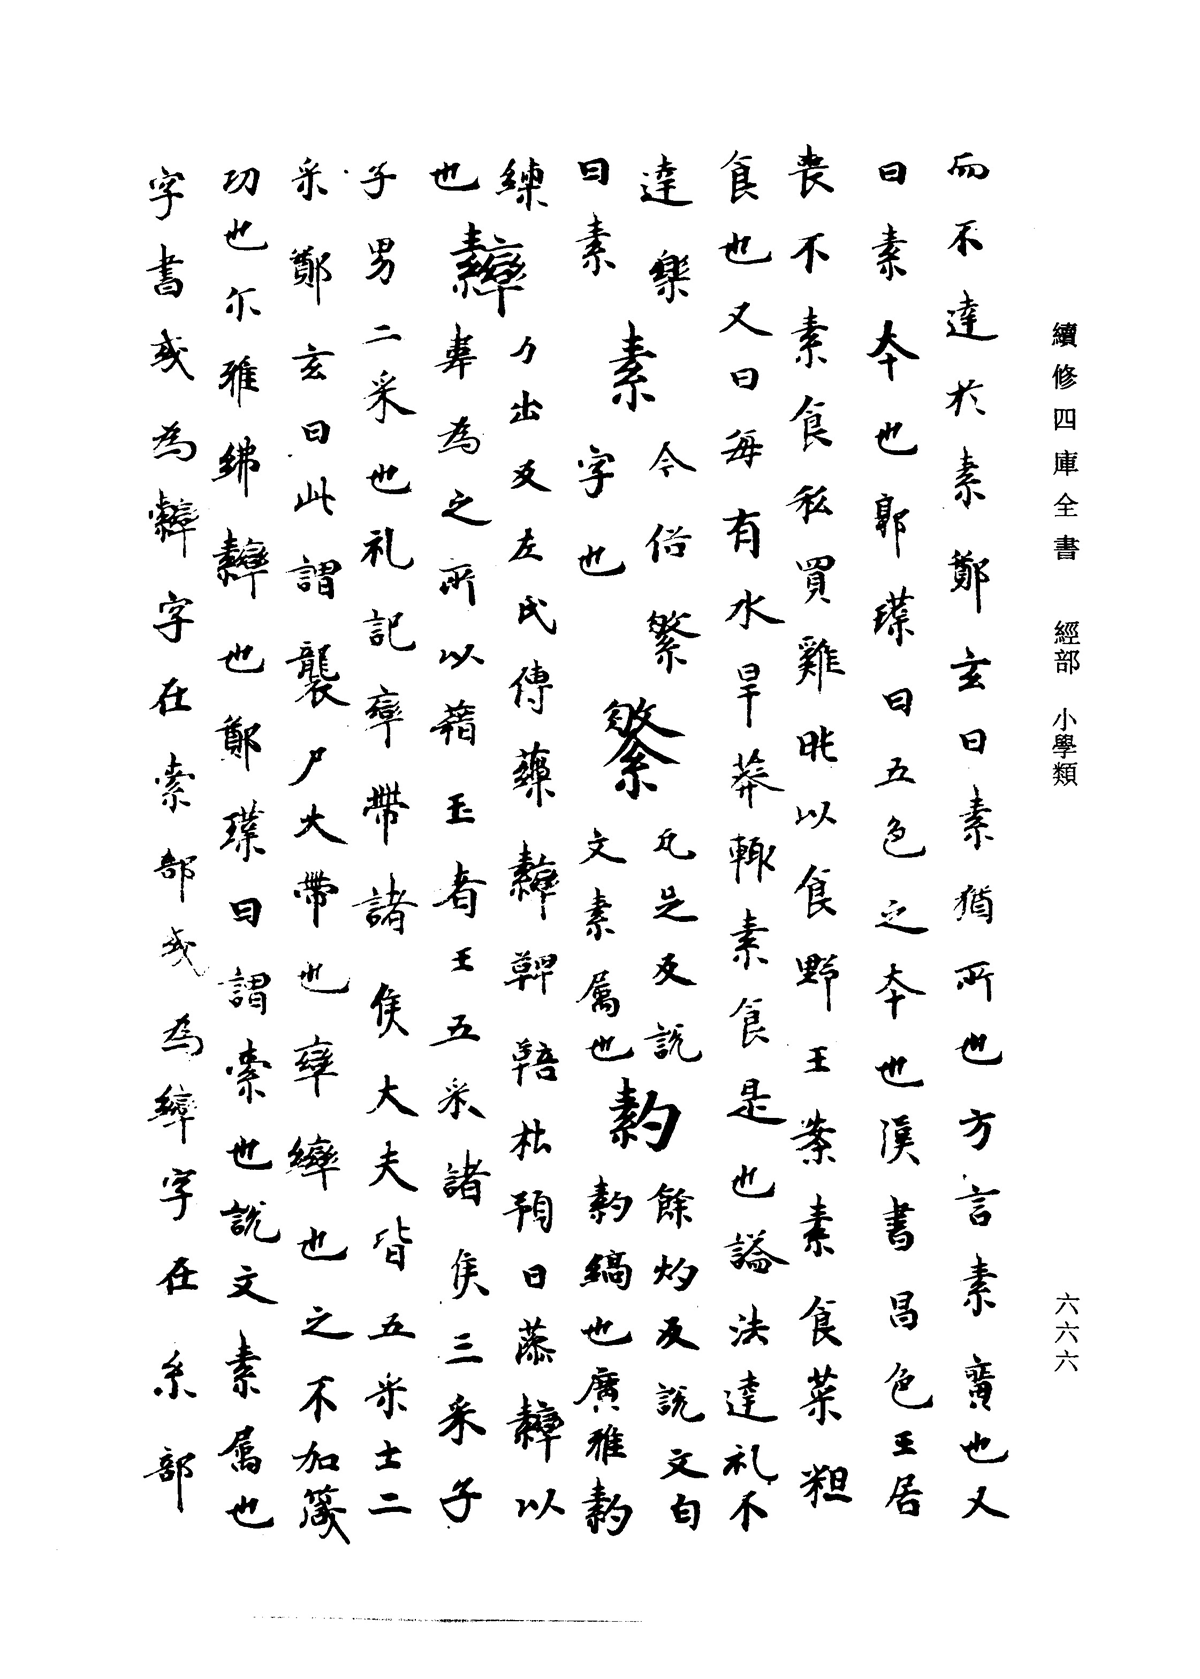 續修四庫全書　經部　小學類
六六六
而不達於素鄭玄曰素猶所也方言素廣也又
曰素夲也郭璞曰五色之夲也漢書昌邑王居
喪不素食私買雞肫以食野王案素食菜粗
食也又曰每有水旱莽輙素食是也謚法達礼不
達樂
曰素
素
今俗繁
字也
䋣
凢足反説
文素属也
䋤
餘灼反説文白
䋤縞也廣雅䋤
練
也
䋲
力出反左氏傳藻䋲鞞鞛杜預曰藻䋲以
韋為之所以藉玉者王五采諸侯三采子
子男二采也礼記率帶諸侯大夫皆五采士二
采鄭玄曰此謂襲尸大帶也率繂也之不加箴
功也尓雅紼䋲也鄭璞曰謂索也説文素属也
字書或為字在索部或為繂字在糸部